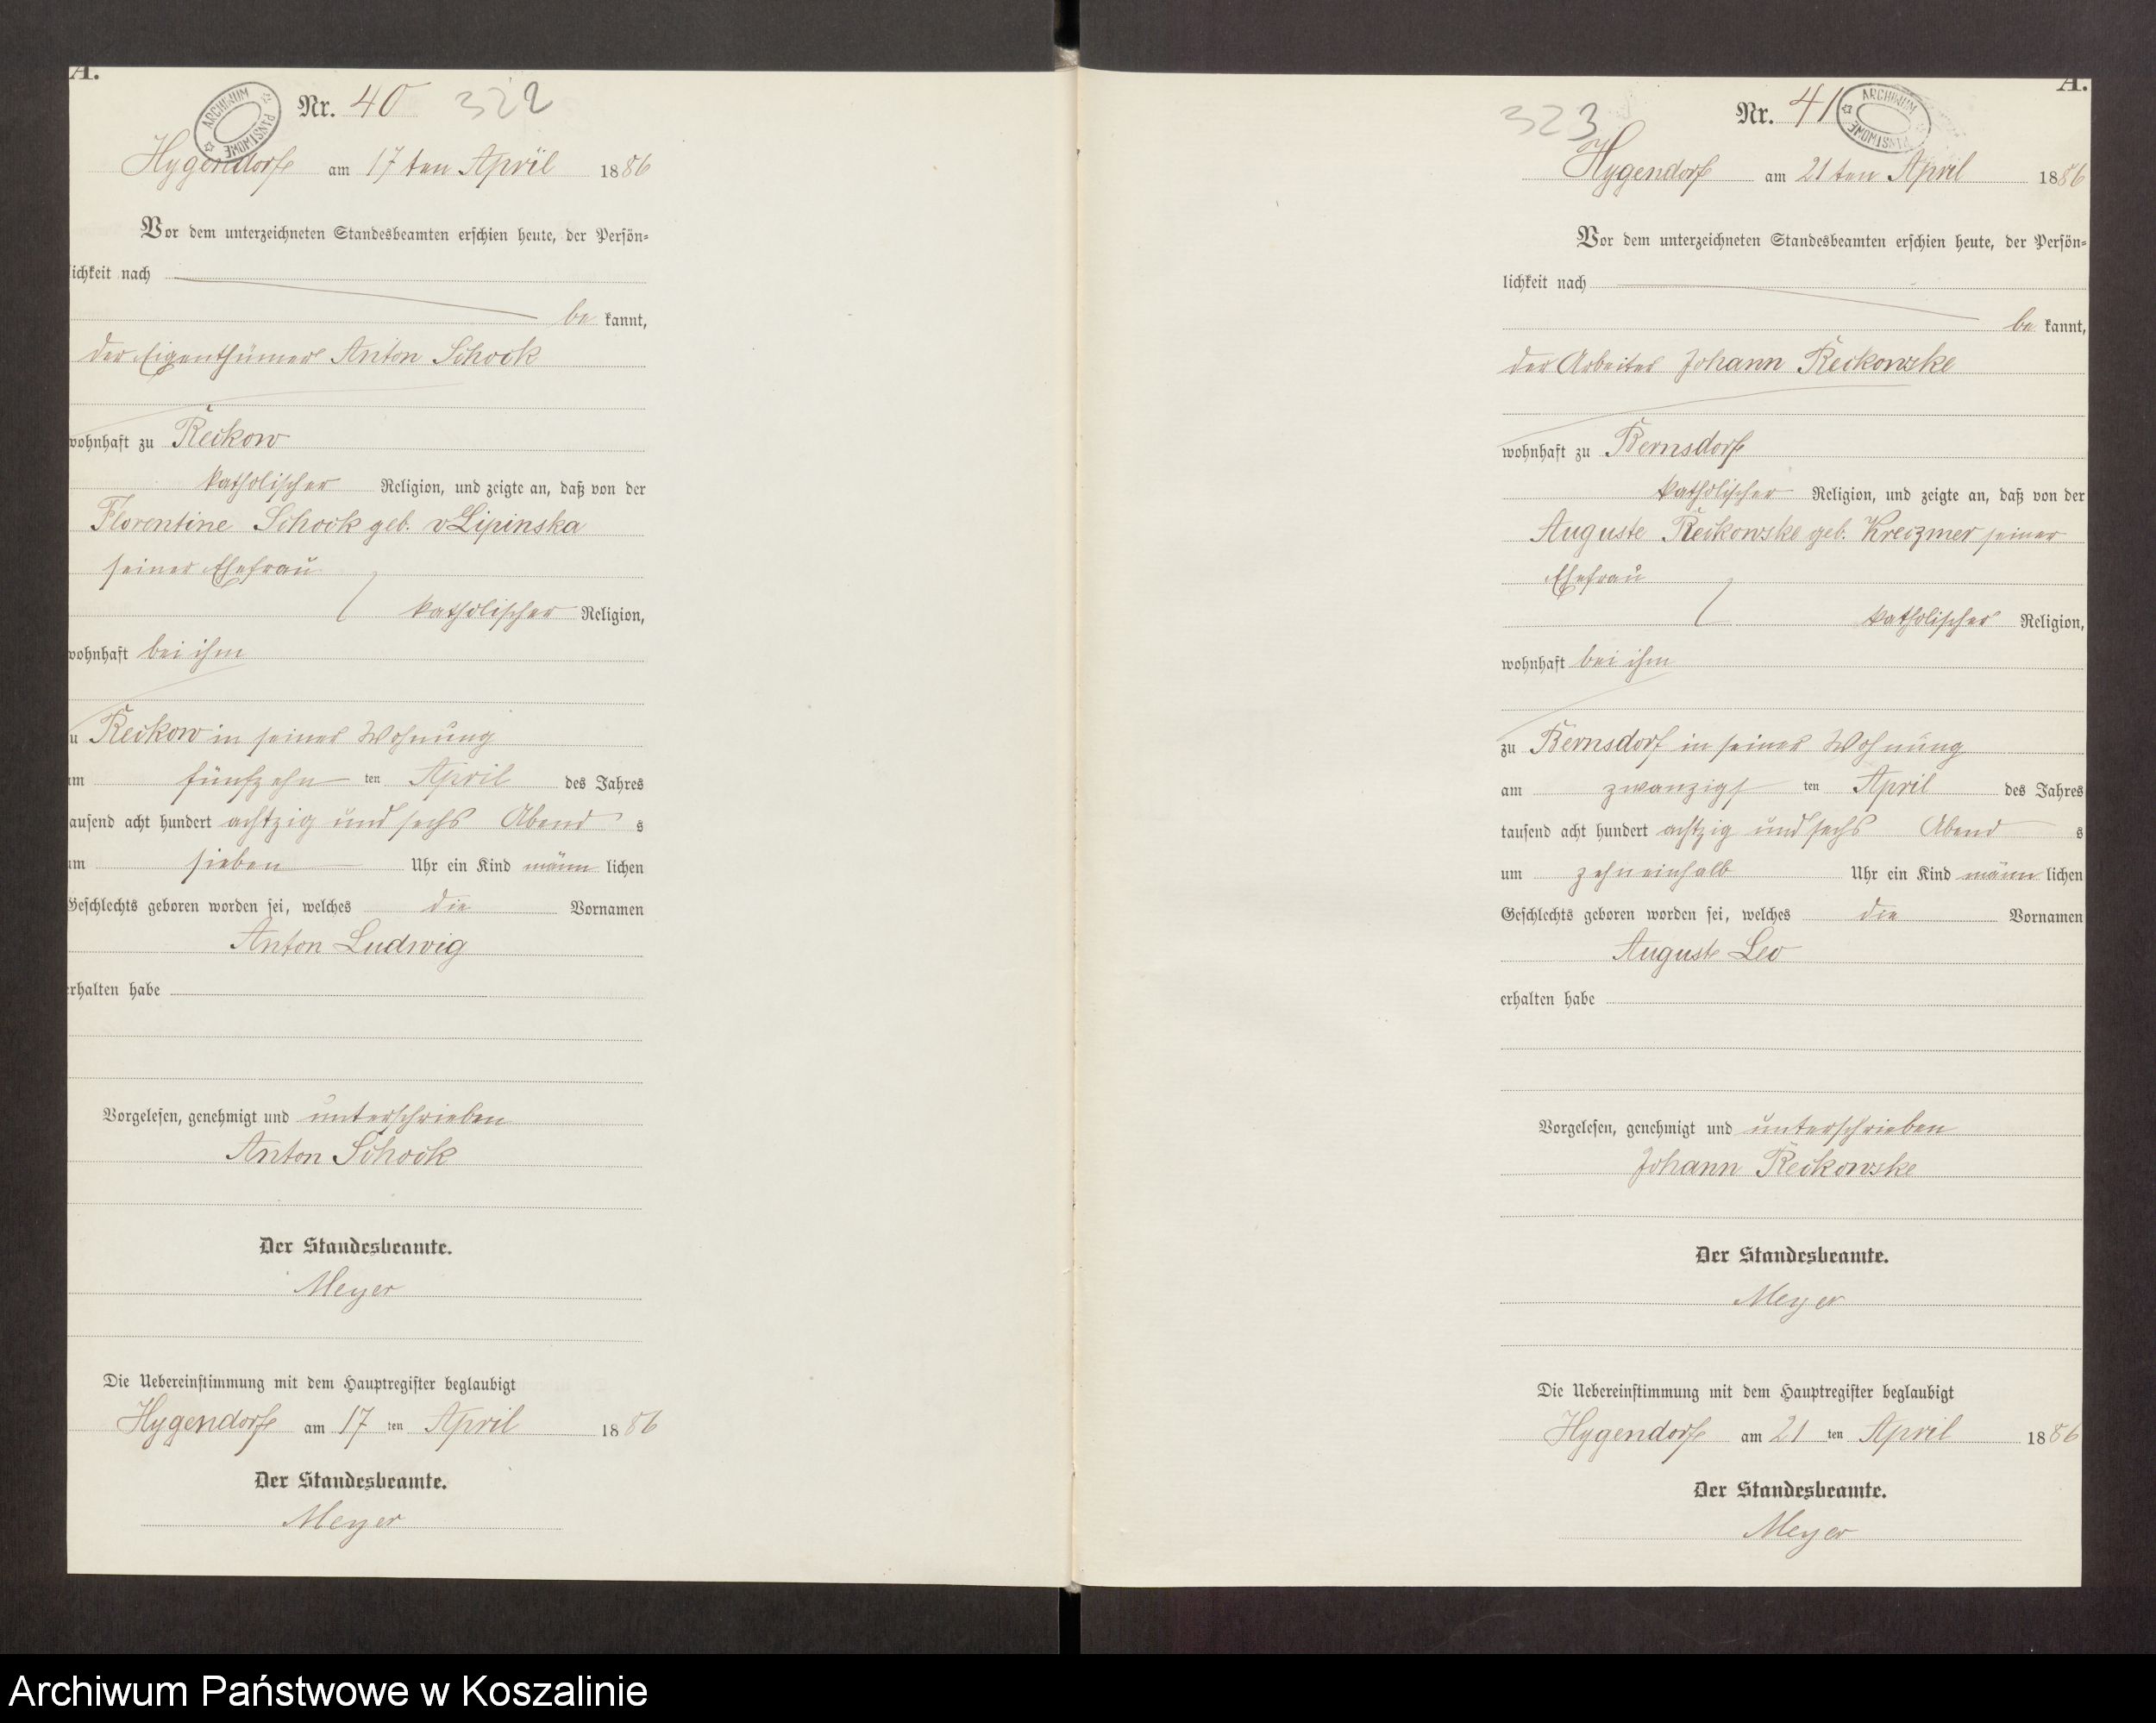 A.
Nr. 40 322
ARCHIWUM PAŃSTWOWE
Hygendorf am 17ten April 1886
Vor dem unterzeichneten Standesbeamten erschien heute, der Persön=
lichkeit nach
be kannt,
der Eigenthümer Anton Schock
wohnhaft zu Reckow
katholischer Religion, und zeigte an, daß von der
Florentine Schock geb. v Lipinska
seiner Ehefrau
katholischer Religion,
wohnhaft bei ihm
zu Reckow in seiner Wohnung
am fünfzehn ten April des Jahres
tausend acht hundert achtzig und sechs Abend s
um sieben Uhr ein Kind männ lichen
Geschlechts geboren worden sei, welches die Vornamen
Anton Ludwig
erhalten habe
Vorgelesen, genehmigt und unterschrieben
Anton Schock
Der Standesbeamte.
Meyer
Die Uebereinstimmung mit dem Hauptregister beglaubigt
Hygendorf am 17 ten April 1886
Der Standesbeamte.
Meyer
A.
323 Nr. 41
ARCHIWUM PAŃSTWOWE
Hygendorf am 21ten April 1886
Vor dem unterzeichneten Standesbeamten erschien heute, der Persön=
lichkeit nach
be kannt,
der Arbeiter Johann Reckowske
wohnhaft zu Bernsdorf
katholischer Religion, und zeigte an, daß von der
Auguste Reckowske geb. Kreczmer seiner
Ehefrau
katholischer Religion,
wohnhaft bei ihm
zu Bernsdorf in seiner Wohnung
am zwanzigs ten April des Jahres
tausend acht hundert achtzig und sechs Abend s
um zehneinhalb Uhr ein Kind männ lichen
Geschlechts geboren worden sei, welches die Vornamen
Auguste Leo
erhalten habe
Vorgelesen, genehmigt und unterschrieben
Johann Reckowske
Der Standesbeamte.
Meyer
Die Uebereinstimmung mit dem Hauptregister beglaubigt
Hygendorf am 21 ten April 1886
Der Standesbeamte.
Meyer
Archiwum Państwowe w Koszalinie